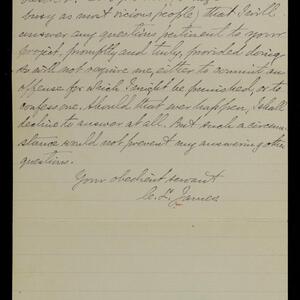 busy as most vicious people) that I will
answer any question pertinent to your
project, promptly and truly, provided doing
so will not require me, either to commit an
offense for which I might be punished, or to
confess one. Should that ever happen, I shall
decline to answer at all. But such a circum-
stance would not prevent my answering other
questions.
Your obedient servant
C. L. James